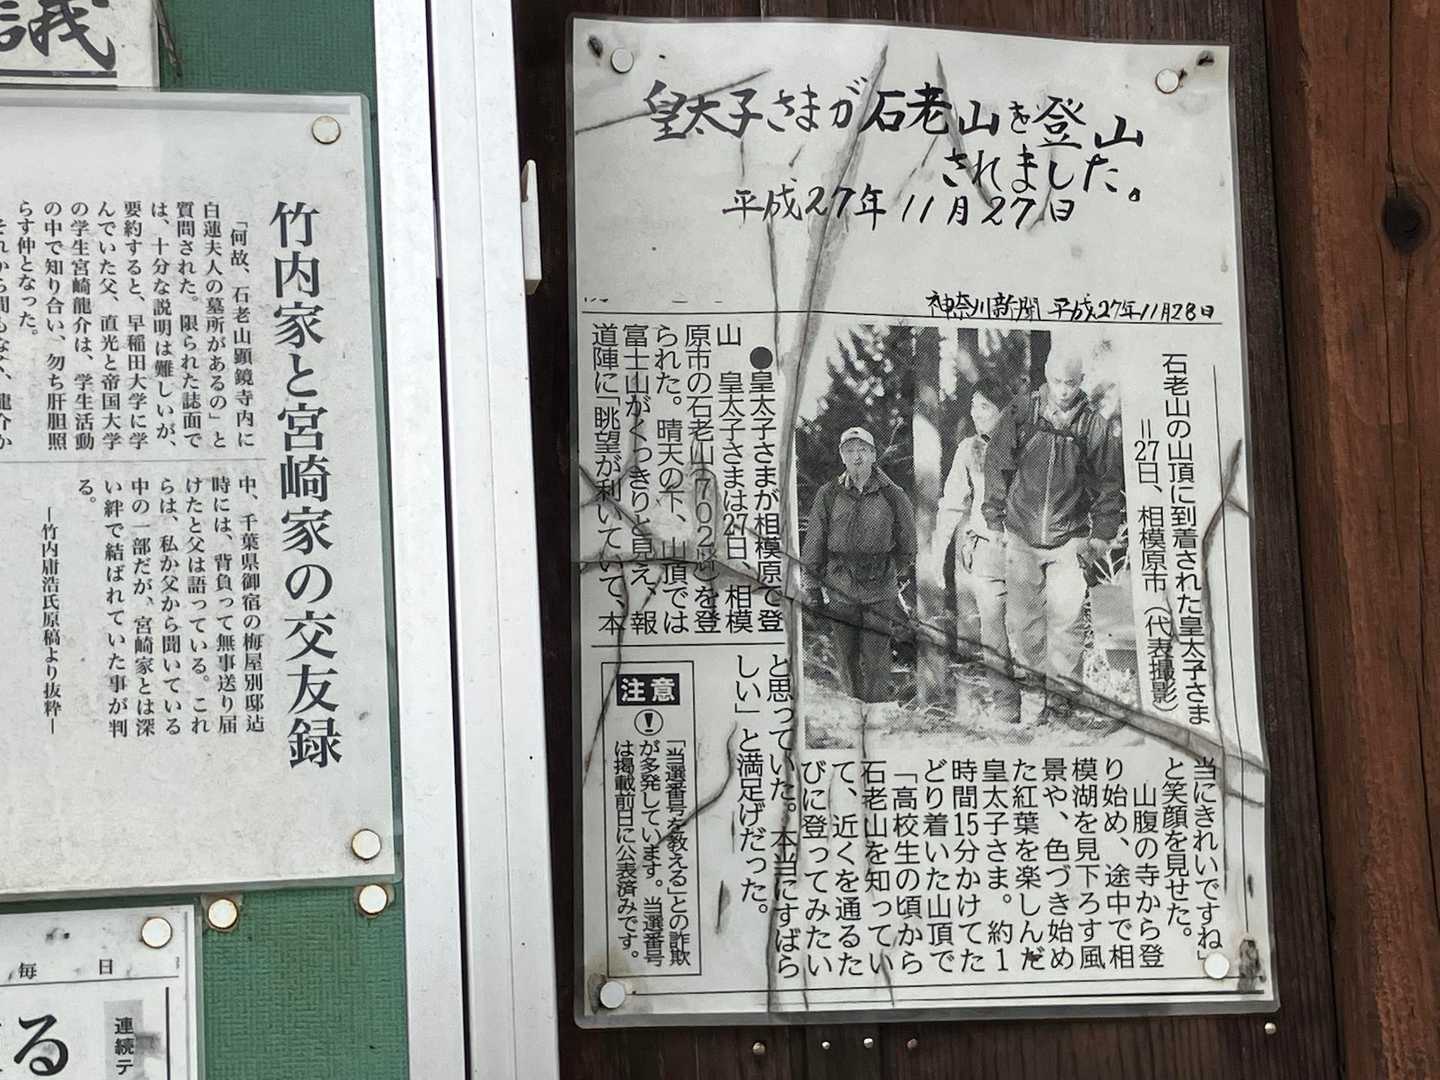 皇太子さまが石老山を登山
されました。
平成27年11月27日
神奈川新聞 平成27年11月28日
石老山の山頂に到着された皇太子さま
＝27日、相模原市（代表撮影）
●皇太子さまが相模原で登
山　皇太子さまは27日、相模
原市の石老山（702㍍）を登
られた。晴天の下、山頂では
富士山がくっきりと見え、報
道陣に「眺望が利いていて、本
当にきれいですね」
と笑顔を見せた。
山腹の寺から登
り始め、途中で相
模湖を見下ろす風
景や、色づき始め
た紅葉を楽しんだ
皇太子さま。約1
時間15分かけてた
どり着いた山頂で
「高校生の頃から
石老山を知ってい
て、近くを通るた
びに登ってみたい
と思っていた。本当にすばら
しい」と満足げだった。
注意
「当選番号を教える」との詐欺
が多発しています。当選番号
は掲載前日に公表済みです。
議
竹内家と宮崎家の交友録
「何故、石老山顕鏡寺内に
白蓮夫人の墓所があるの」と
質問された。限られた誌面で
は、十分な説明は難しいが、
要約すると、早稲田大学に学
んでいた父、直光と帝国大学
の学生宮崎龍介は、学生活動
の中で知り合い、勿ち肝胆照
らす仲となった。
それから間もなく、龍介か
中、千葉県御宿の梅屋別邸迠
時には、背負って無事送り届
けたと父は語っている。これ
らは、私か父から聞いている
中の一部だが、宮崎家とは深
い絆で結ばれていた事が判
る。
―竹内庸浩氏原稿より抜粋―
毎日
連続テ
る